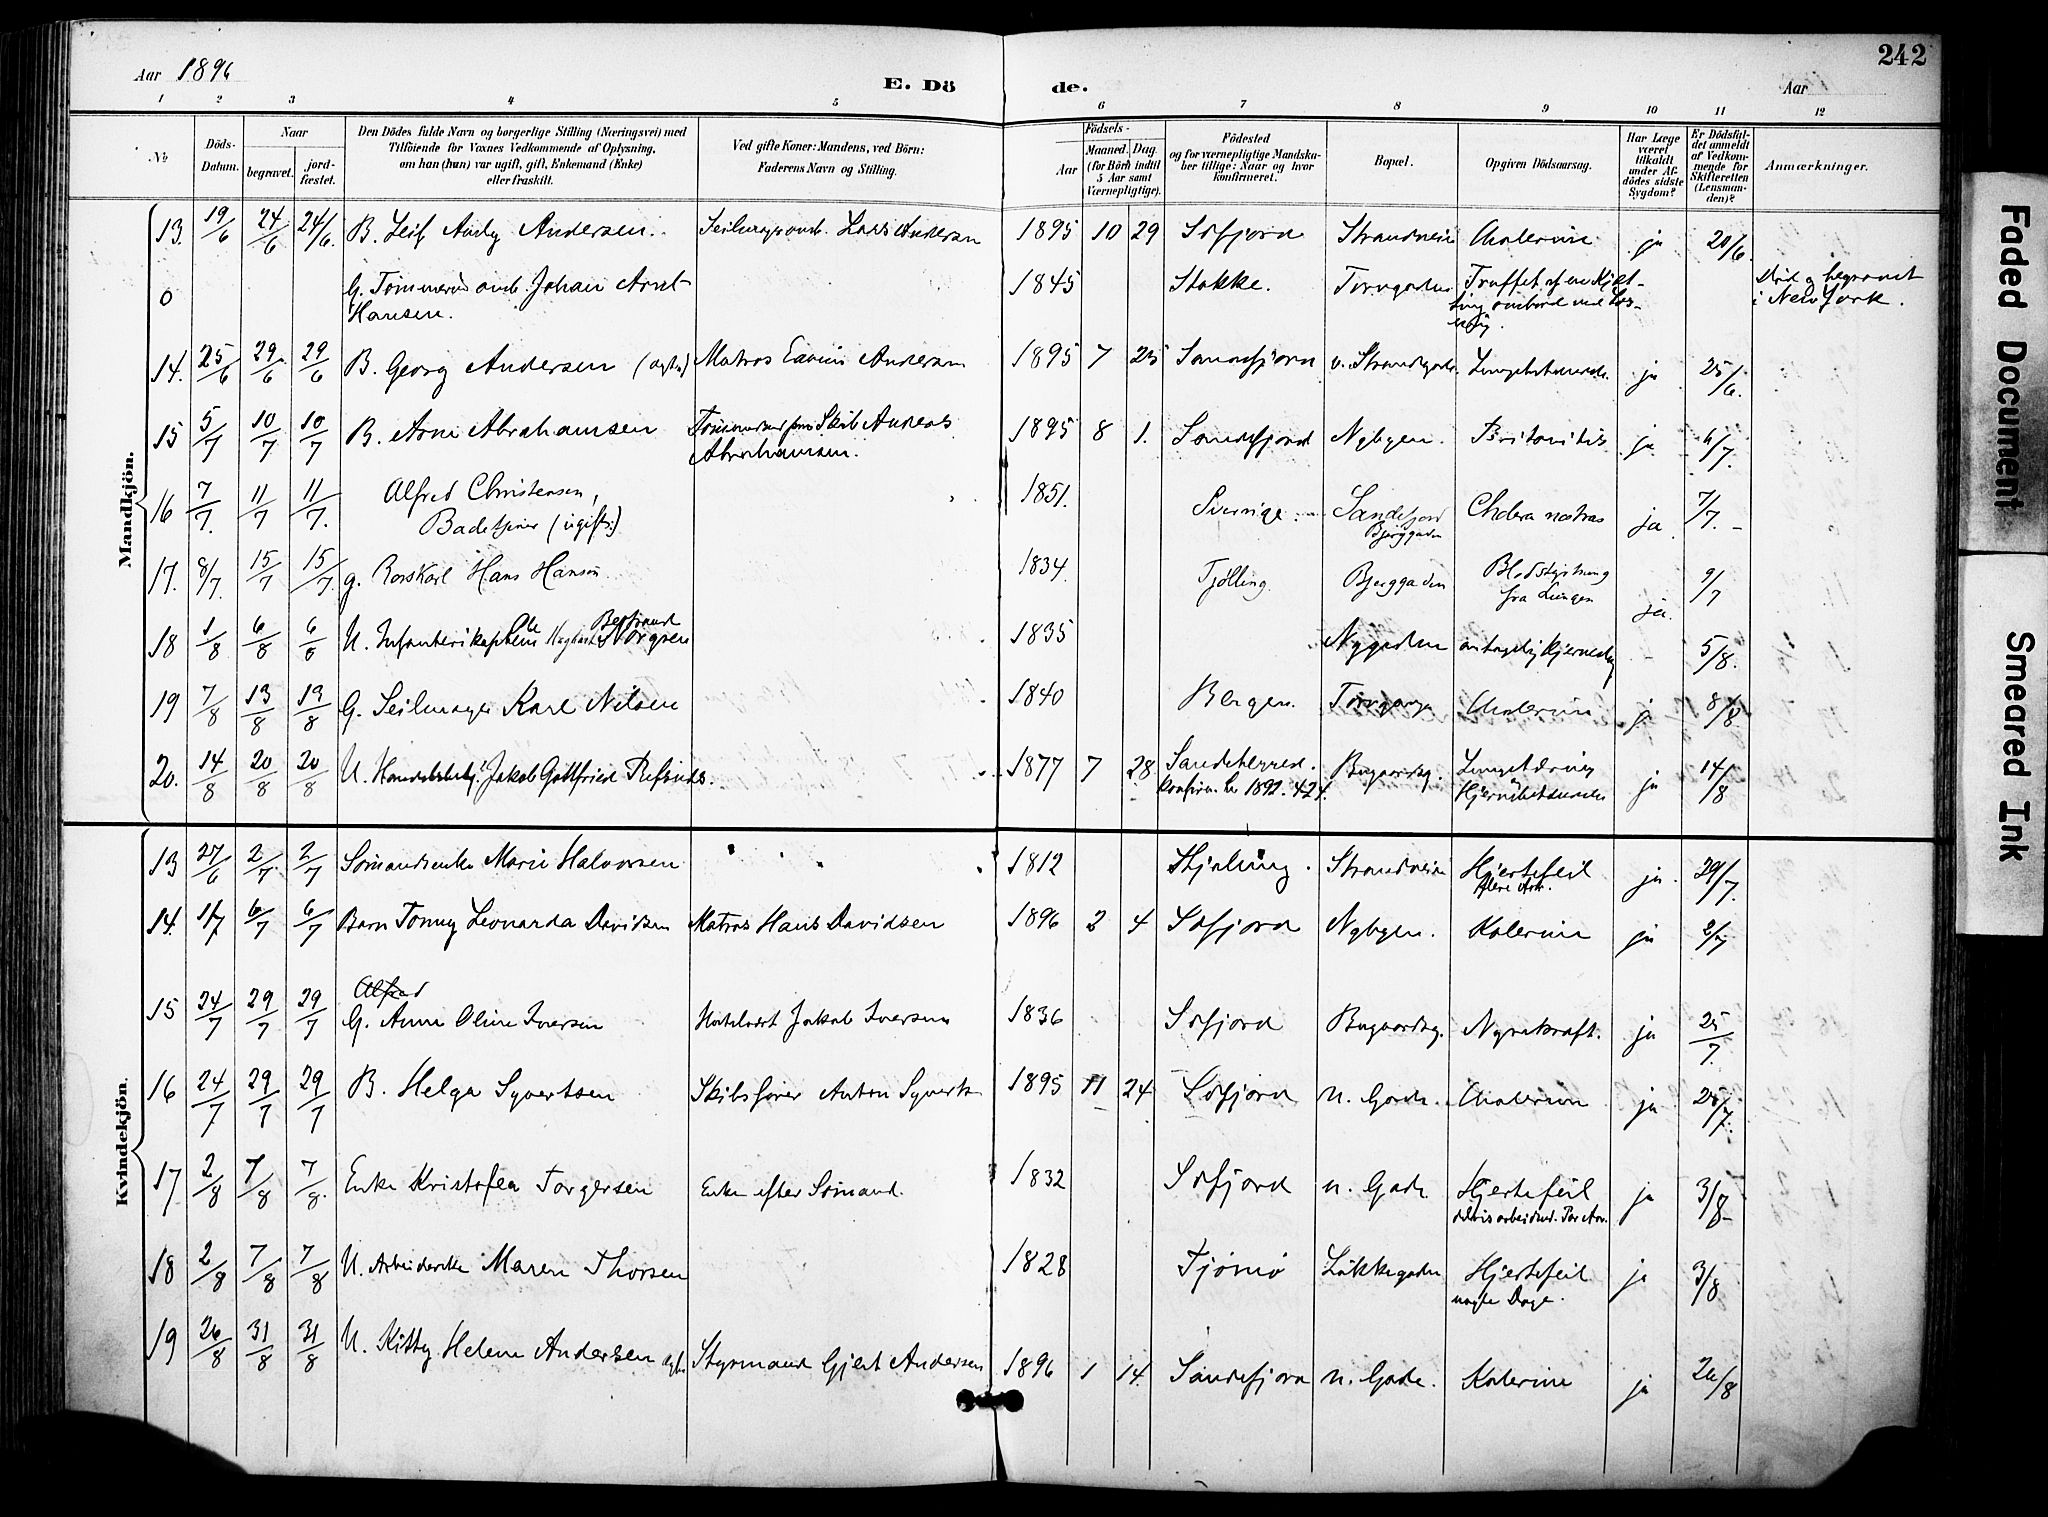 242
Aar 1896
E. Dö de.
Aar
1 2 3 4 5 6 7 8 9 10 11 12
No
Döds-Datum.
Naar
begravet.
jord-fæstet.
Den Dödes fulde Navn og borgerlige Stilling (Næringsvei) med
Tilföiende for Voxnes Vedkommende af Oplysning,
om han (hun) var ugift, gift, Enkemand (Enke)
eller fraskilt.
Ved gifte Koner: Mandens, ved Börn:
Faderens Navn og Stilling.
Födsels-
Aar
Maaned. Dag.
(for Börn indtil
5 Aar samt
Værnepligtige).
Födested
og for værnepligtige Mandska-
ber tillige: Naar og hvor
konfirmeret.
Bopæl.
Opgiven Dödsaarsag.
Har Læge
været
tilkaldt
under Af-
dödes sidste
Sygdom?
Er Dödsfal-
det anmeldt
af Vedkom-
mende for
Skifteretten
(Lensman-
den)?
Anmærkninger.
Mandkjön.
13. 19/6 24/6 24/6. B. Leif Andersen. Lars Andersen 1895 10 29 Sdfjord Strandvein ja 20/6.
0 G. Tömmermand Johan Arnt Hansen. 1845 Stokke. Død og begravet
i New York.
14. 25/6 29/6 29/6 B. Georg Andersen Matros Andersen 1895 7 25 Sandefjord ja 25/6.
15 5/7 10/7 10/7 B. Arne Abrahamsen Andreas
Abrahamsen. 1895 8 1. Sandefjord Nybyen. ja 6/7.
16 7/7. 11/7 11/7. Alfred Christensen,
Badetjener (ugift.) 1851. Sverrige. Sandefjord
Bjerggaden Cholera nostras ja 7/7.
17. 8/7. 15/7 15/7. g. Hans Hansen. 1834. Tjølling Bjerggaden Blodstyrtning
fra Lungen ja. 9/7
18 1/8 6/8 6/8 U. Infanterikaptein Ole 1835 Nygaden 5/8.
19 7/8 13/8 13/8 G. Seilmager Karl Nilsen 1840 Bergen. ja 8/8
20. 14/8 20/8 20/8 U. Jakob Gottfried 1877 7 28 Sandeherred. Bugaardsg. ja 14/8
Kvindekjön.
13 27/6 2/7. 2/7 Sømandsenke Marie Halvorsen 1812 Strandvein Hjertefeil ja. 29/7.
14. 1/7 6/7 6/7 Barn Leonarda Davidsen Matros Hans Davidsen 1896 2 4 Sdfjord Nybyen. Kolerine ja 2/7
15 24/7 29/7 29/7 Alfred
G. Anne Oline Iversen Jakob Iversen 1836 Sdfjord Bugaardsg. Nyrekræft. ja 25/7
16 24/7 29/7 29/7 B. Helga Syvertsen Skibsfører Anton 1895 11 24 Sdfjord n. Gade. ja 25/7.
17. 2/8 7/8 7/8. Enke Torgersen Enke efter Sømand. 1832 Sdfjord n. Gade Hjertefeil ja 3/8
18 2/8 7/8 7/8 U. Maren Thorsen 1828 Tjømø Løkkegaden Hjertefeil
nogle Dage. ja 3/8
19 26/8 31/8 31/8 U. Kitty Helene Andersen Styrmand Gjert Andersen 1896 1 14. Sandefjord n. Gade. Kolerine ja 26/8
Faded Document
Smeared Ink